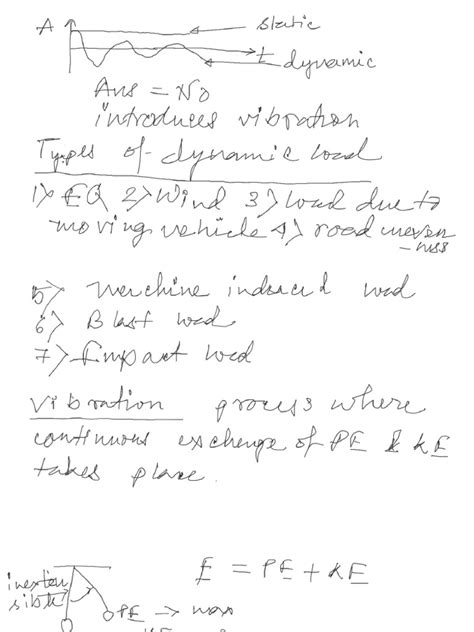 A static
t dynamic
Ans = No
introduces vibration
Types of dynamic load
1> EQ 2> Wind 3> load due to
moving vehicle 4> road uneven
-ness
5> Machine induced load
6> Blast load
7> Impact load
Vibration process where
continuous exchange of PE & KE
takes place.
E = PE + KE
inexten
sible
PE → max